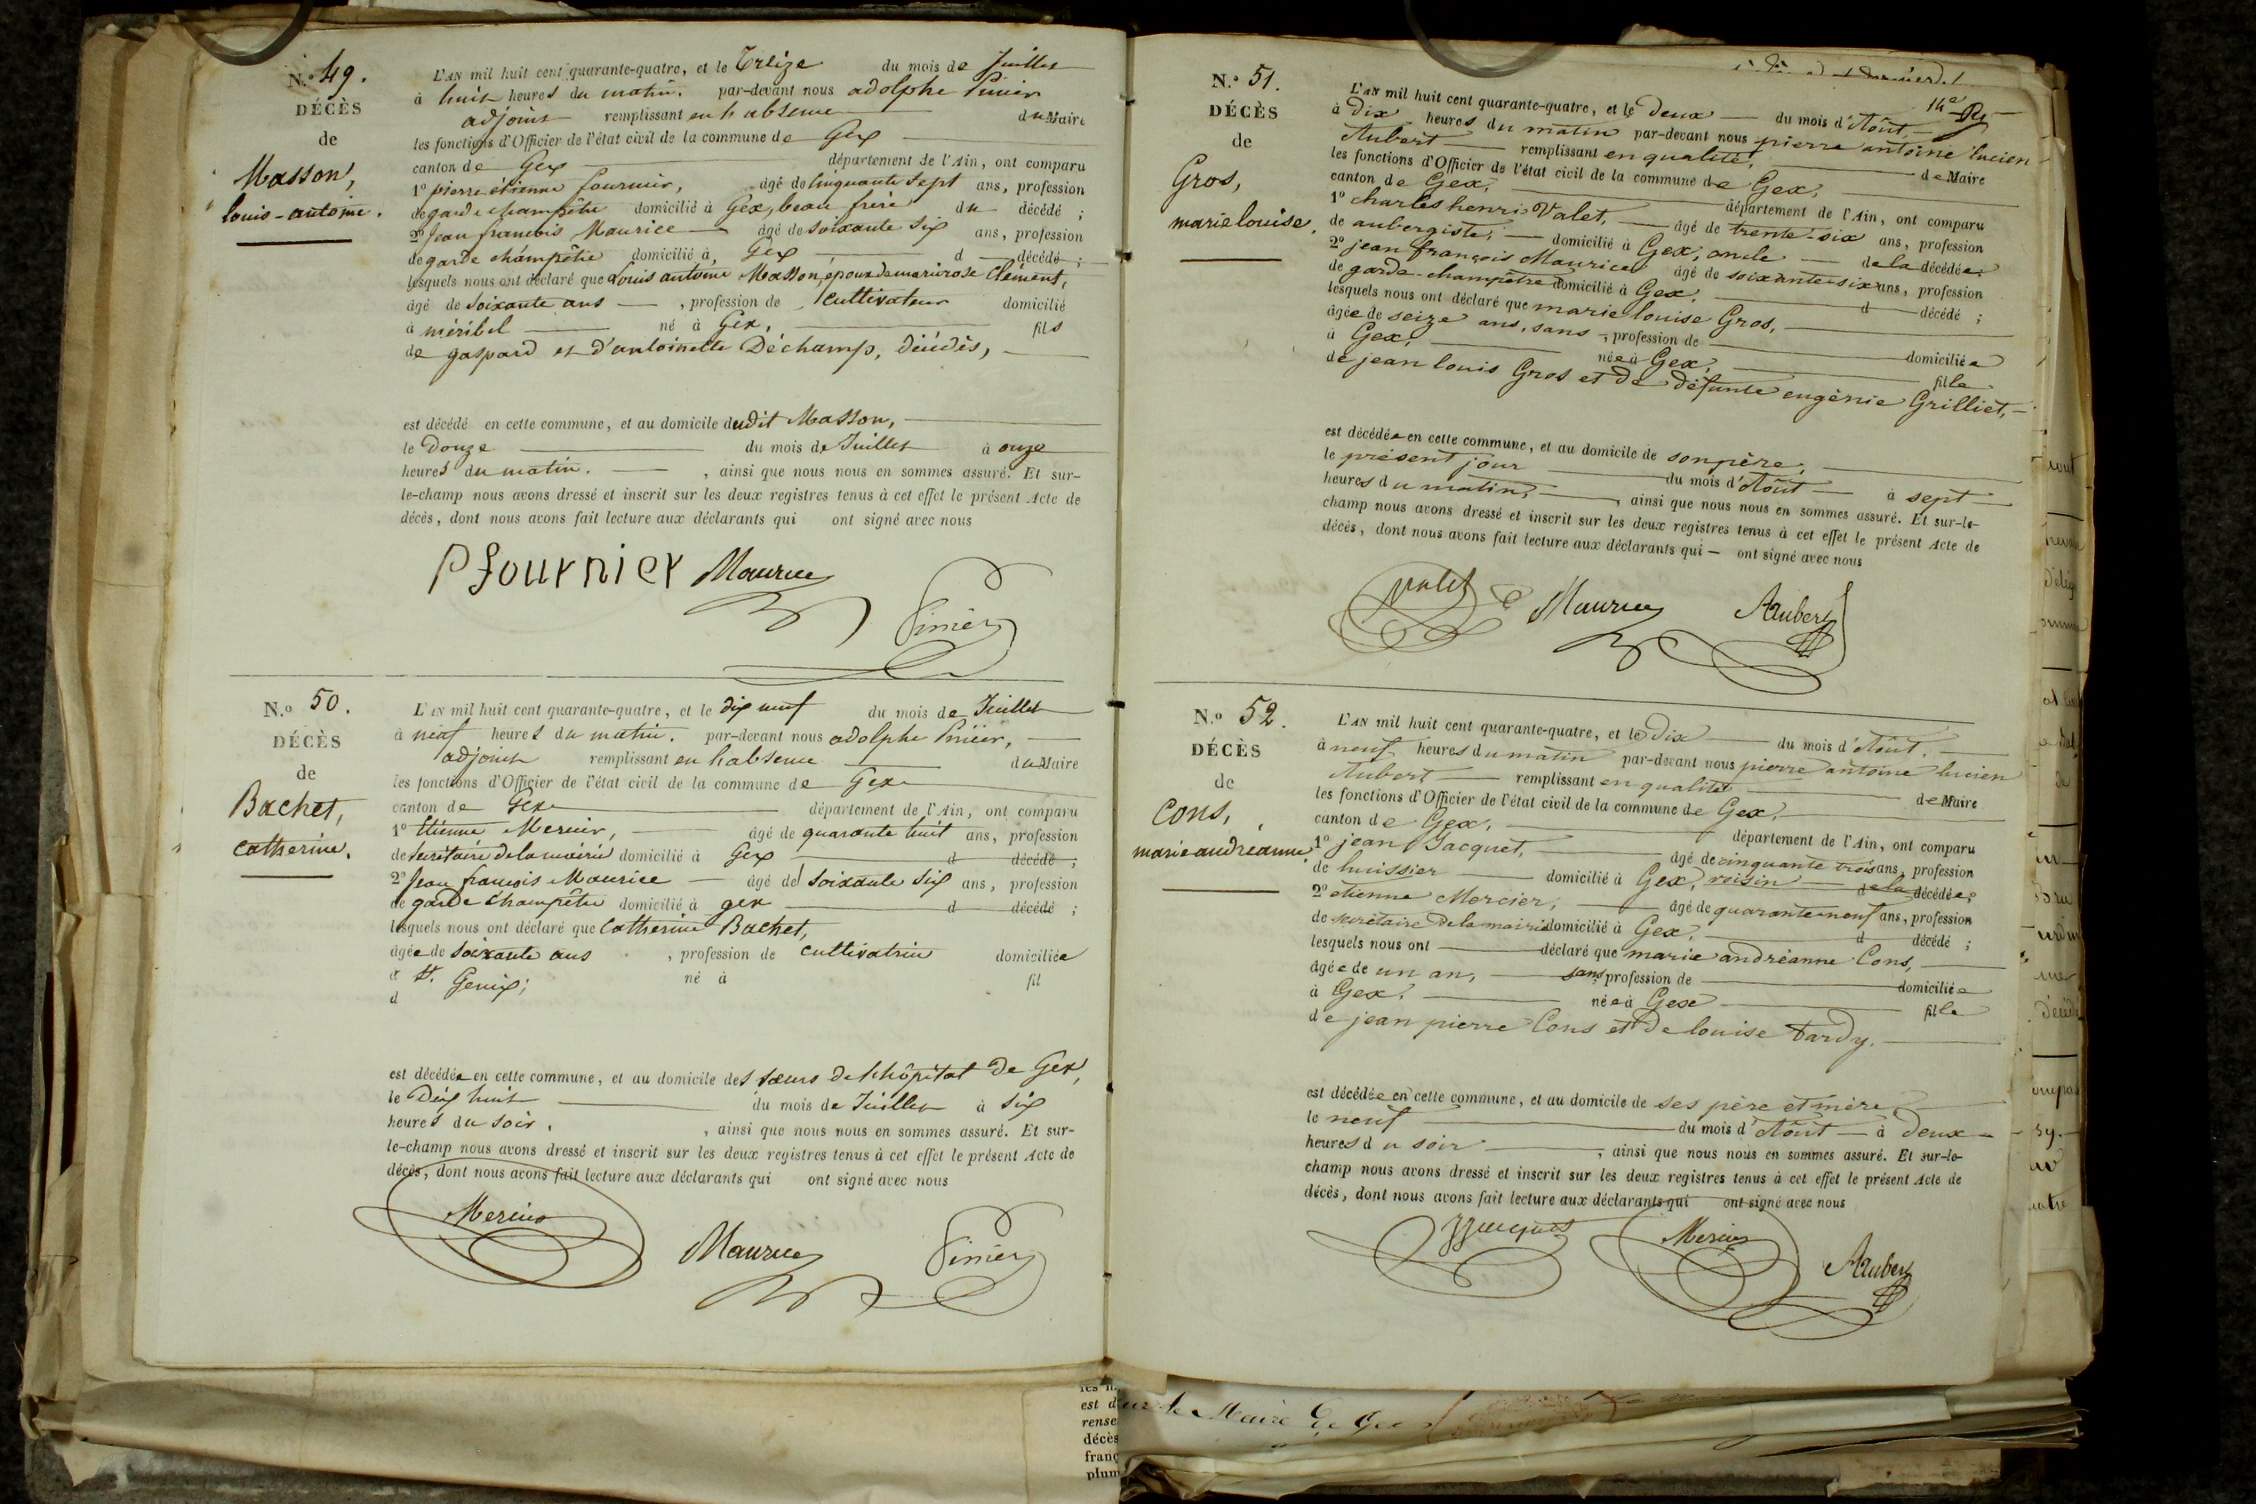 N.o 49.
DÉCÈS
de
Masson,
louis-antoine.
L'AN mil huit cent quarante-quatre, et le treize du mois de Juillet
à huit heures du matin. par-devant nous adolphe Pinier
adjoint remplissant en l'absence du Maire
les fonctions d'Officier de l'état civil de la commune de Gex
canton de Gex département de l'Ain, ont comparu
1o pierre étienne fournier, âgé de cinquante sept ans, profession
de garde champêtre domicilié à Gex, beau frère du décédé ;
2o Jean françois Maurice âgé de soixante six ans, profession
de garde champêtre domicilié à Gex d décédé ;
lesquels nous ont déclaré que Louis antoine Masson, époux de marie rose Clément,
âgé de soixante ans , profession de cultivateur domicilié
à méribel né à Gex, fils
de gaspard et d'antoinette Déchamp, décédés,
est décédé en cette commune, et au domicile dudit Masson,
le Douze du mois de Juillet à onze
heures du matin. , ainsi que nous nous en sommes assuré. Et sur-
le-champ nous avons dressé et inscrit sur les deux registres tenus à cet effet le présent Acte de
décès, dont nous avons fait lecture aux déclarants qui ont signé avec nous
P fournier Maurice
Pinier
N.o 50.
DÉCÈS
de
Bachet,
catherine.
L'AN mil huit cent quarante-quatre, et le dix neuf du mois de Juillet
à neuf heures du matin. par-devant nous adolphe Pinier,
adjoint remplissant en l'absence du Maire
les fonctions d'Officier de l'état civil de la commune de Gex
canton de Gex département de l'Ain, ont comparu
1o Etienne Mercier, âgé de quarante huit ans, profession
de secrétaire de la mairie domicilié à Gex d décédé ;
2o Jean françois Maurice âgé de soixante six ans, profession
de garde champêtre domicilié à gex d décédé ;
lesquels nous ont déclaré que Catherine Bachet,
âgée de soixante ans , profession de cultivatrice domiciliée
à St. Genix; né à fil
d
est décédée en cette commune, et au domicile des sœurs de l'hôpital de Gex,
le Dix huit du mois de Juillet à six
heures du soir. , ainsi que nous nous en sommes assuré. Et sur-
le-champ nous avons dressé et inscrit sur les deux registres tenus à cet effet le présent Acte de
décès, dont nous avons fait lecture aux déclarants qui ont signé avec nous
Mercier
Maurice Pinier
N.o 51.
DÉCÈS
de
Gros,
marie louise.
14e
L'AN mil huit cent quarante-quatre, et le deux du mois d'Août,
à dix heures du matin par-devant nous pierre antoine lucien
Aubert remplissant en qualité, de Maire
les fonctions d'Officier de l'état civil de la commune de Gex,
canton de Gex, département de l'Ain, ont comparu
1o charles henri Valet, âgé de trente-six ans, profession
de aubergiste, domicilié à Gex, oncle de la décédée;
2o jean françois Maurice âgé de soixante-six ans, profession
de garde-champêtre domicilié à Gex, d décédé ;
lesquels nous ont déclaré que marie louise Gros,
âgée de seize ans, sans , profession de domiciliée
à Gex, née à Gex, fille
de jean louis Gros et de défunte eugènie Grilliet,
est décédée en cette commune, et au domicile de son père,
le présent jour du mois d'Août à sept
heures du matin, , ainsi que nous nous en sommes assuré. Et sur-le-
champ nous avons dressé et inscrit sur les deux registres tenus à cet effet le présent Acte de
décès, dont nous avons fait lecture aux déclarants qui ont signé avec nous
Valet Maurice Aubert
N.o 52.
DÉCÈS
de
Cons,
marie andréanne.
L'AN mil huit cent quarante-quatre, et le dix du mois d'Août,
à neuf heures du matin par-devant nous pierre antoine lucien
Aubert remplissant en qualité de Maire
les fonctions d'Officier de l'état civil de la commune de Gex,
canton de Gex, département de l'Ain, ont comparu
1o jean Jacquet, âgé de cinquante trois ans, profession
de huissier domicilié à Gex, voisin de la décédée;
2o etienne Mercier, âgé de quarante neuf ans, profession
de secrétaire de la mairie domicilié à Gex, d décédé ;
lesquels nous ont déclaré que marie andréanne Cons,
âgée de un an, sans profession de domiciliée
à Gex, née à Gex fille
de jean pierre Cons et de louise tardy.
est décédée en cette commune, et au domicile de ses père et mère,
le neuf du mois d'Août à deux
heures du soir , ainsi que nous nous en sommes assuré. Et sur-le-
champ nous avons dressé et inscrit sur les deux registres tenus à cet effet le présent Acte de
décès, dont nous avons fait lecture aux déclarants qui ont signé avec nous
Jacquet Mercier
Aubert
le Maire de Gex
est d
rense
décès
franç
plum